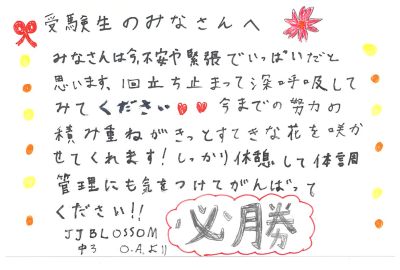 受験生のみなさんへ
みなさんは今、不安や緊張でいっぱいだと
思います、1回立ち止まって深呼吸して
みてください 今までの努力の
積み重ねがきっとすてきな花を咲か
せてくれます！しっかり休憩して体調
管理にも気をつけてがんばって
ください!!
JJ BLOSSOM
中3 O.A.より
必勝